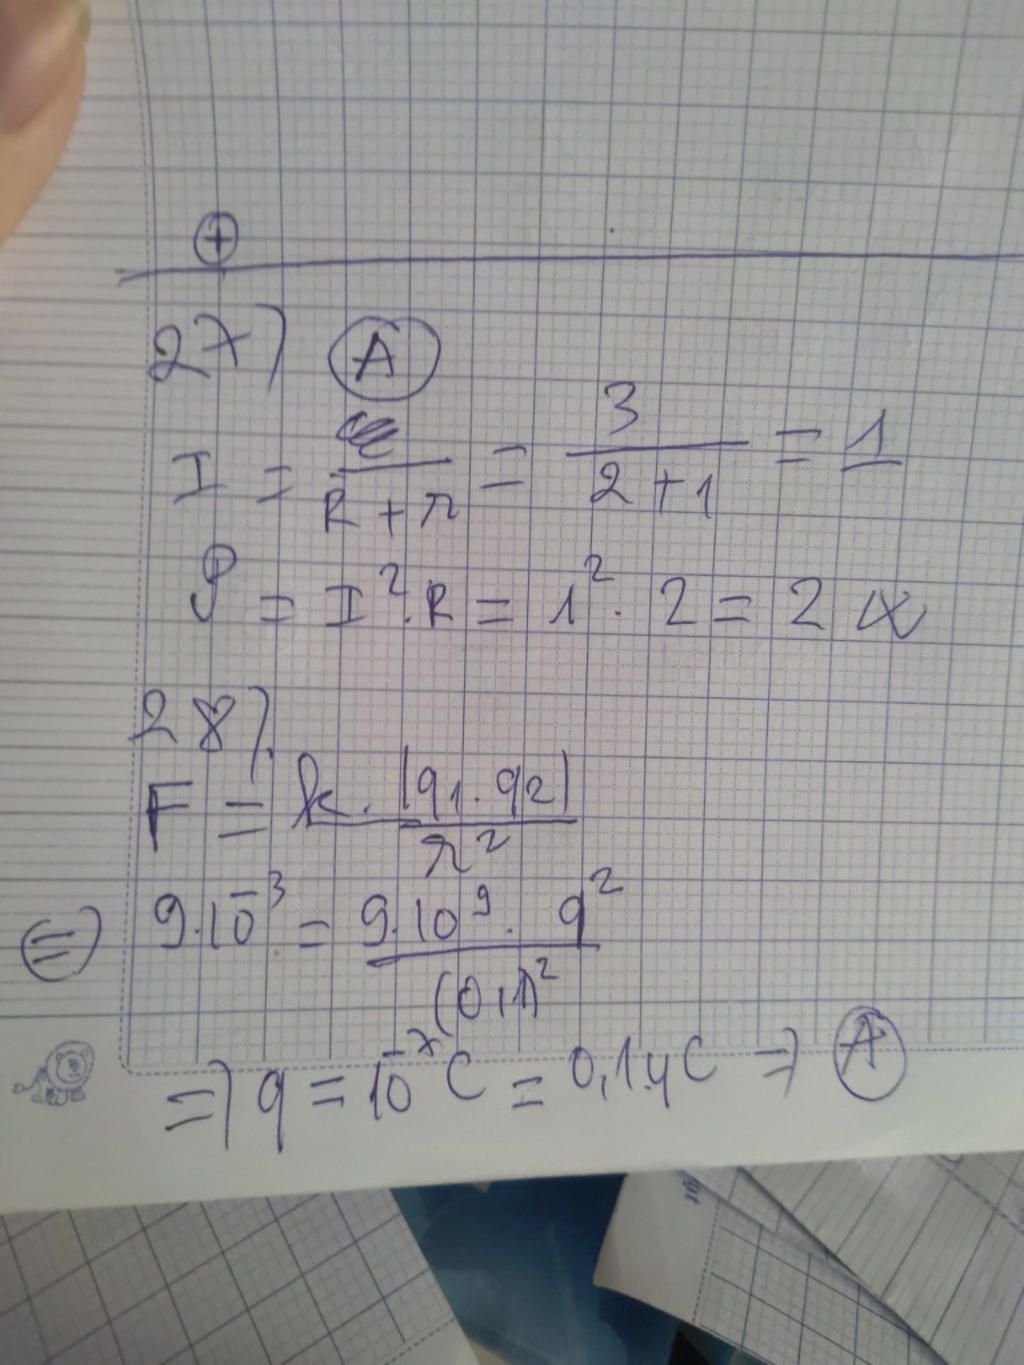 +
27) A
I = ξ/(R + r) = 3/(2 + 1) = 1
P = I². R = 1² . 2 = 2 W
28)
F = k. |q1.q2|/r²
(=) 9.10⁻³ = 9.10⁹ . q²/(0,1)²
=) q = 10⁻⁷ C = 0,1 μC =) A